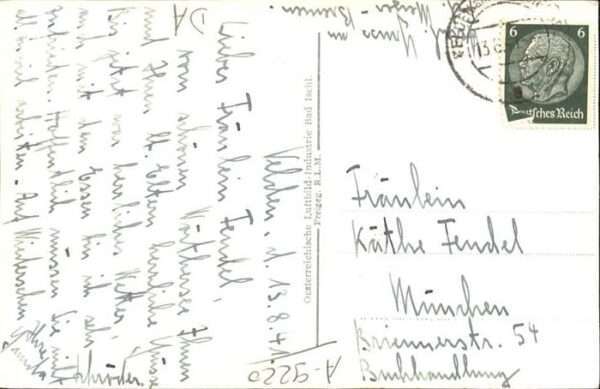 DA
Velden, d. 13.8.41.
Liebes Fräulein Fendel,
vom schönen Wörthersee Ihnen
und Ihren lb. Eltern herzliche Grüsse
Bis jetzt war herrliches Wetter,
auch mit dem Essen bin ich sehr
zufrieden. Hoffentlich müssen Sie nicht
schwitzen. Auf Wiedersehen
Schröder.
Oesterreichische Luftbild-Industrie Bad Ischl.
Freigeg. R.L.M.
6 6
Deutsches Reich
Fräulein
Käthe Fendel
München
Briennerstr. 54
Buchhandlung
A-9220